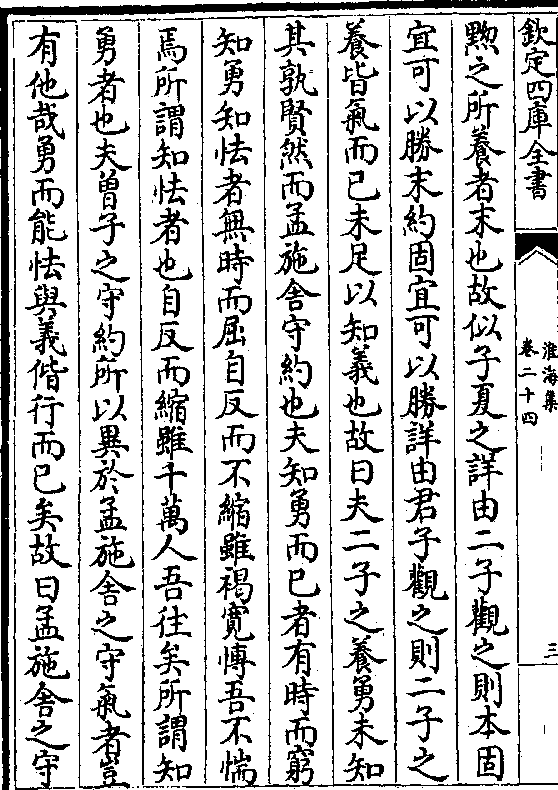 欽定四庫全書
淮海集
卷二十四
三
黝之所養者末也故似子夏之詳由二子觀之則本固
宜可以勝末約固宜可以勝詳由君子觀之則二子之
養皆氣而已未足以知義也故曰夫二子之養勇未知
其孰賢然而孟施舍守約也夫知勇而已者有時而窮
知勇知怯者無時而屈自反而不縮雖褐寛慱吾不惴
焉所謂知怯者也自反而縮雖千萬人吾往矣所謂知
勇者也夫曽子之守約所以異於孟施舍之守氣者豈
有他哉勇而能怯與義偕行而已矣故曰孟施舍之守